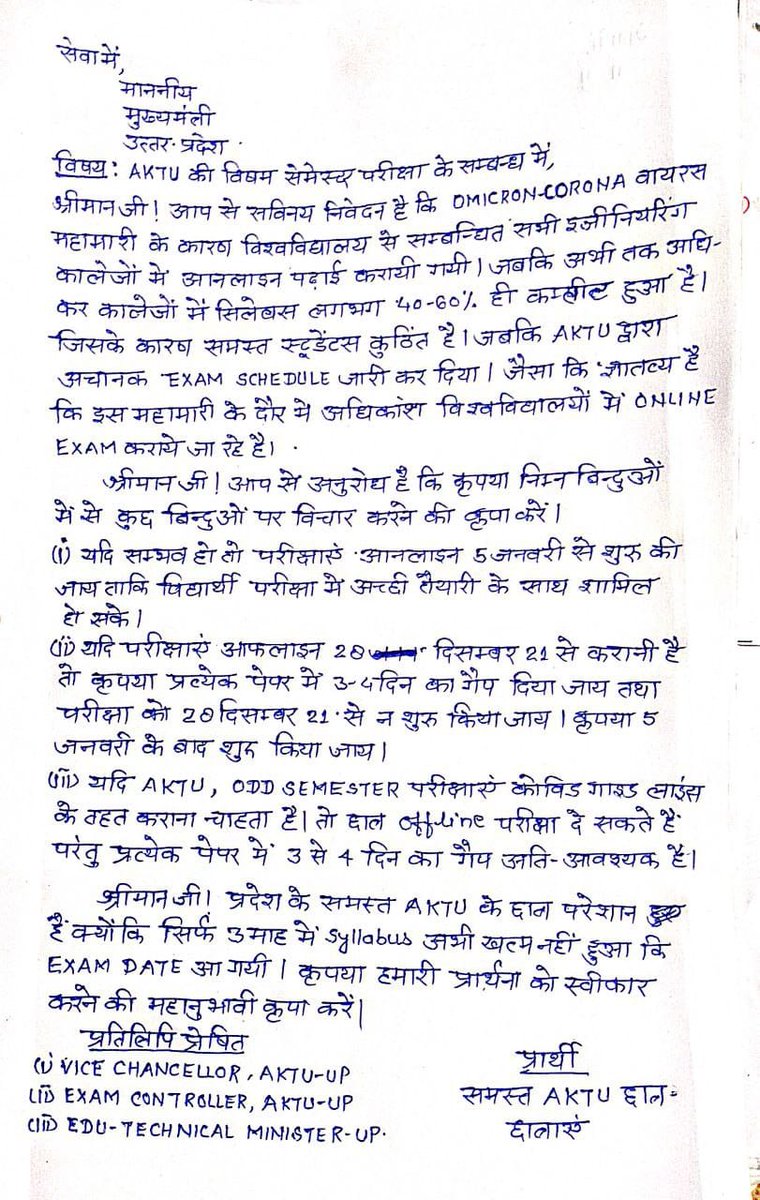 सेवा में,
माननीय
मुख्यमंत्री
उत्तर-प्रदेश.
विषय: AKTU की विषम सेमेस्टर परीक्षा के सम्बन्ध में,
श्रीमान जी! आप से सविनय निवेदन है कि OMICRON-CORONA वायरस
महामारी के कारण विश्वविद्यालय से सम्बन्धित सभी इंजीनियरिंग
कालेजों में आनलाइन पढ़ाई करायी गयी। जबकि अभी तक अधि-
कर कालेजों में सिलेबस लगभग 40-60% ही कम्प्लीट हुआ है।
जिसके कारण समस्त स्टूडेंटस कुठिंत है। जबकि AKTU द्वारा
अचानक EXAM SCHEDULE जारी कर दिया। जैसा कि ज्ञातव्य है
कि इस महामारी के दौर में अधिकांश विश्वविद्यालयों में ONLINE
EXAM कराये जा रहे है।
श्रीमान जी! आप से अनुरोध है कि कृपया निम्न बिन्दुओं
में से कुछ बिन्दुओं पर विचार करने की कृपा करें।
(i) यदि सम्भव हो तो परीक्षाएं आनलाइन 5 जनवरी से शुरु की
जाय ताकि विद्यार्थी परीक्षा में अच्छी तैयारी के साथ शामिल
हो सके।
(ii) यदि परीक्षाएं आफलाइन 28 दिसम्बर 21 से करानी है
तो कृपया प्रत्येक पेपर में 3-4 दिन का गैप दिया जाय तथा
परीक्षा को 28 दिसम्बर 21 से न शुरु किया जाय। कृपया 5
जनवरी के बाद शुरु किया जाय।
(iii) यदि AKTU, ODD SEMESTER परीक्षाएं कोविड गाइड लाइंस
के तहत कराना चाहता है। तो छात्र off-line परीक्षा दे सकते हैं
परंतु प्रत्येक पेपर में 3 से 4 दिन का गैप अति-आवश्यक है।
श्रीमान जी। प्रदेश के समस्त AKTU के छात्र परेशान
हैं क्योंकि सिर्फ 3 माह में syllabus अभी खत्म नहीं हुआ कि
EXAM DATE आ गयी। कृपया हमारी प्रार्थना को स्वीकार
करने की महानुभावी कृपा करें।
प्रतिलिपि प्रेषित
(i) VICE CHANCELLOR, AKTU-UP
(ii) EXAM CONTROLLER, AKTU-UP
(iii) EDU-TECHNICAL MINISTER-UP.
प्रार्थी
समस्त AKTU छात्र-
छात्राएं